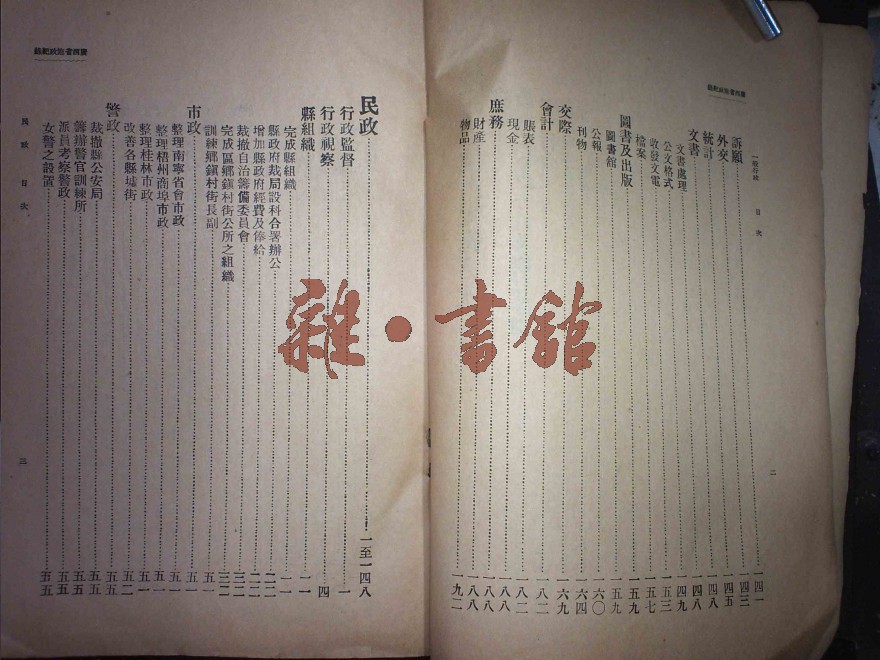 廣西省施政紀錄
一般行政 目次 二
訴願 一四一
外交 一四三
統計 一四五
文書 一四八
文書處理 一四八
公文格式 一四九
收發文電 一五三
檔案 一五七
圖書及出版 一五九
圖書館 一五九
公報 一六〇
刊物 一六四
交際 一六九
會計 一八二
賬表 一八二
現金 一八八
庶務 一八八
財產 一八八
物品 一九二
廣西省施政紀錄
民政 一至一四八
行政監督 一
行政視察 四
縣組織 一一
完成縣組織 一一
縣政府裁局設科合署辦公 二一
增加縣政府經費及俸給 二二
裁撤自治籌備委員會 二二
完成區鄉鎮村街公所之組織 三二
訓練鄉鎮村街長副 五一
市政 五一
整理南寧省會市政 五一
整理梧州商埠市政 五一
整理桂林市政 五一
改善各縣墟街 五二
警政 五五
裁撤縣公安局 五五
籌辦警官訓練所 五五
派員考察警政 五五
女警之設置 五五
民政 目次 三
雜·書館